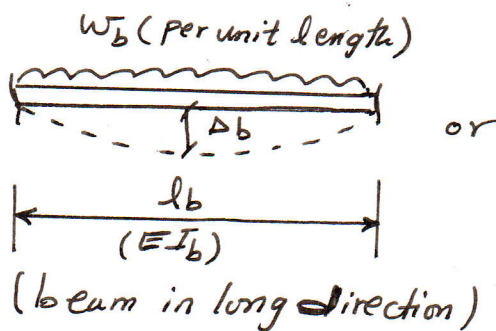 w_b (per unit length)
Δb
or
l_b
(EI_b)
(beam in long direction)